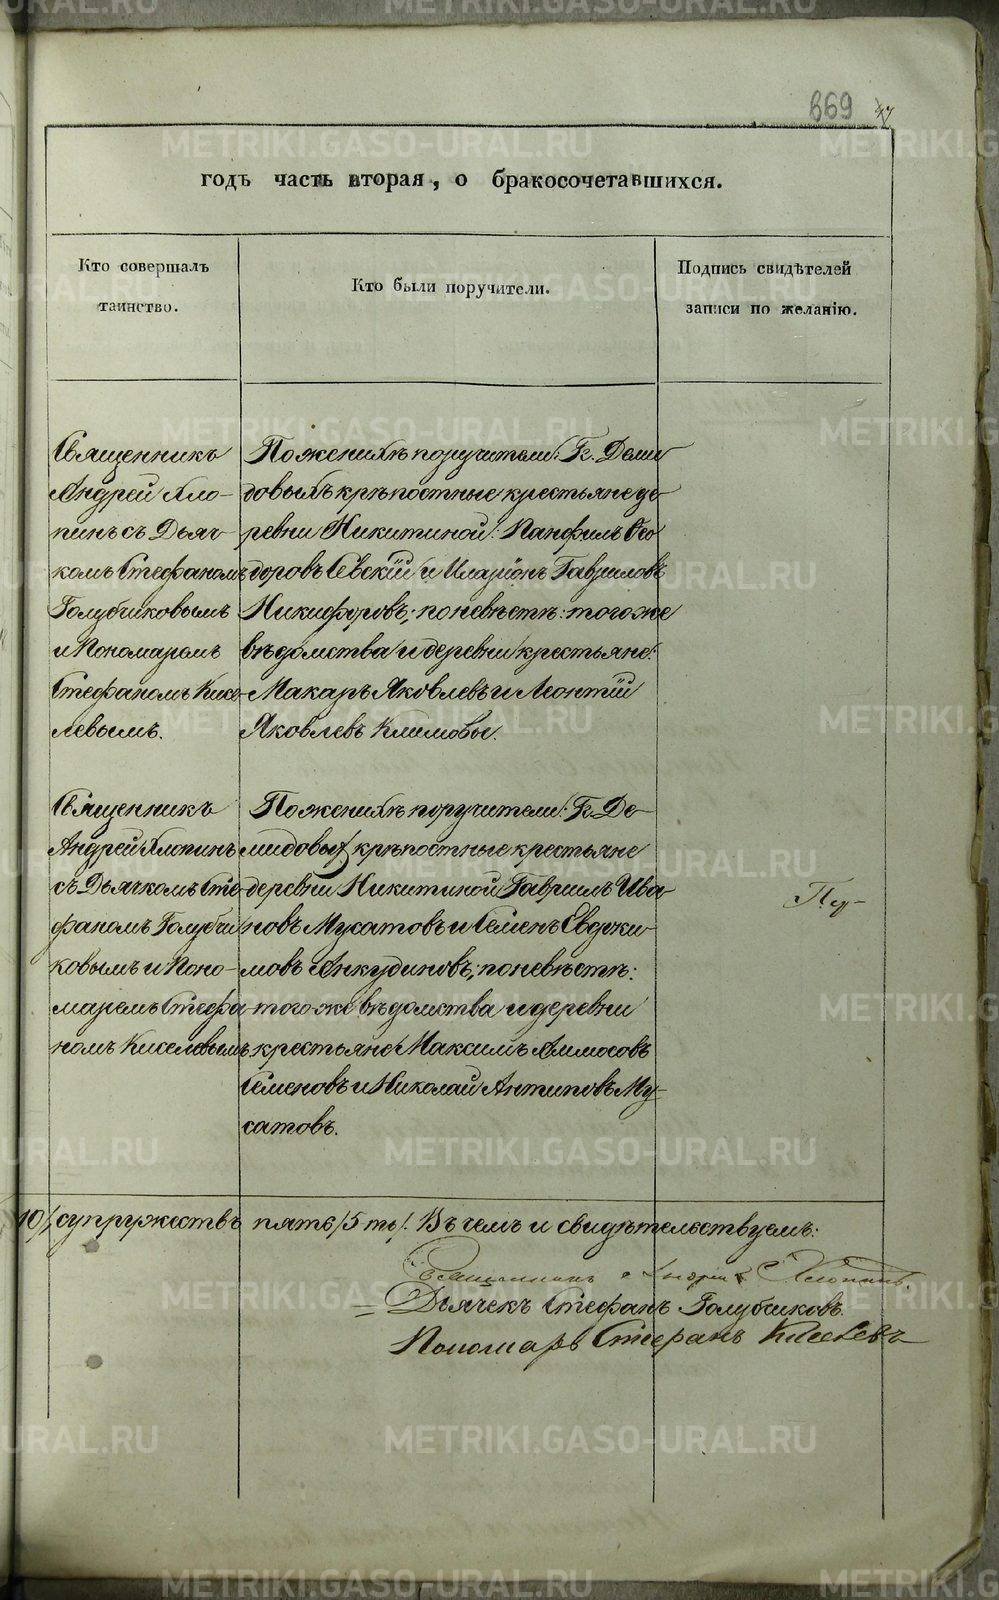 669
годъ часть вторая, о бракосочетавшихся.
Кто совершалъ
таинство.
Кто были поручители.
Подпись свидѣтелей
записи по желанію.
Священникъ
Андрей Хло-
пинъ съ Дьяч-
комъ Стефаномъ
Голубчиковымъ
и Пономаремъ
Стефаномъ Кисе-
левымъ.
По женихѣ поручители: Гг. Деми-
довыхъ крѣпостные крестьяне де-
ревни Никитиной: Панфилъ Ѳео
доровъ Севскій и Иларіонъ Гавриловъ
Никифоровъ; по невѣстѣ: того же
вѣдомства и деревни крестьяне:
Макаръ Яковлевъ и Леонтій
Яковлевъ Климовы.
Священникъ
Андрей Хлопинъ
съ Дьячкомъ Сте
фаномъ Голубчи
ковымъ и Поно-
маремъ Стефа
номъ Киселевымъ
По женихѣ поручители: Гг. Де-
мидовыхъ крѣпостные крестьяне
деревни Никитиной Гавріилъ Ива
новъ Мусатовъ и Семенъ
Анкудиновъ; по невѣстѣ:
того же вѣдомства и деревни
крестьяне Максимъ Аммосовъ
Семеновъ и Николай Антиповъ Му-
сатовъ.
10/, супружествъ пять /5 ть/. Въ чемъ и свидѣтельствуемъ:
Священникъ Андрей Хлопинъ.
Дьячекъ Стефанъ Голубчиковъ.
Пономарь Стефанъ Киселевъ
METRIKI.GASO-URAL.RU